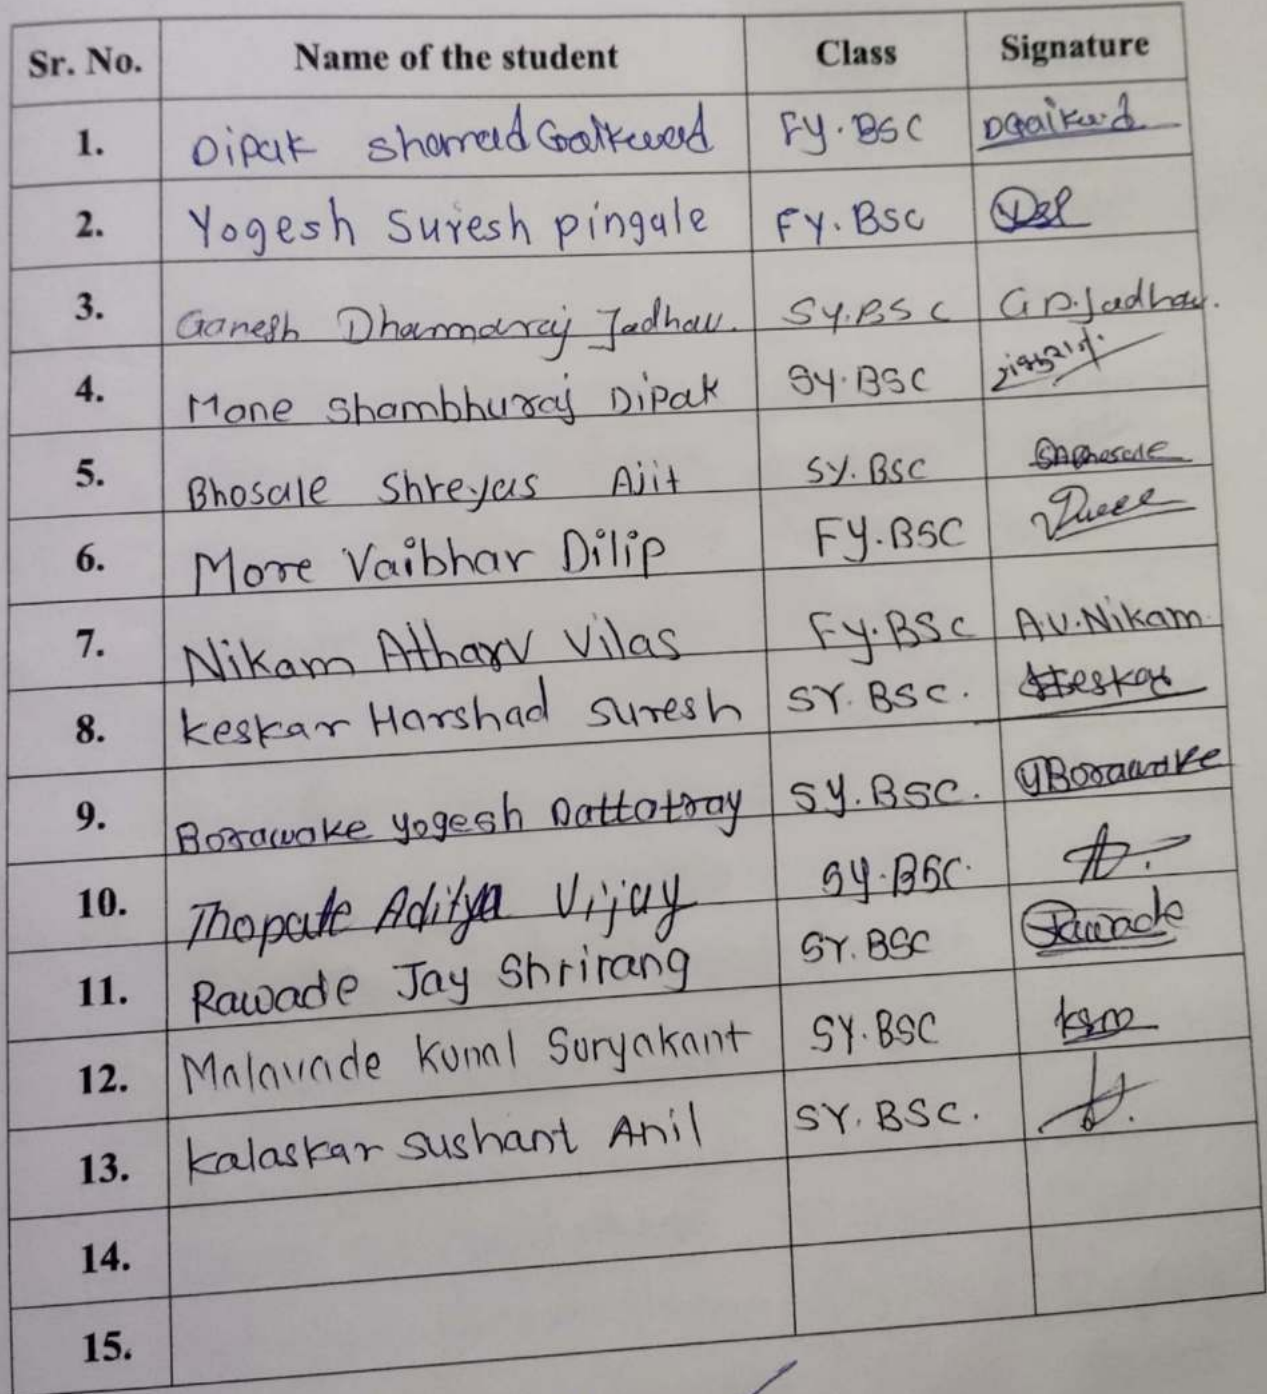 Sr. No. Name of the student Class Signature
1. Dipak Sharad Gaikwad FY.BSC DGaikwad
2. Yogesh Suresh pingale FY.BSC
3. Ganesh Dharmaraj Jadhav. SY.BSC G.D.Jadhav.
4. Mane Shambhuraj Dipak SY.BSC
5. Bhosale Shreyas Ajit SY.BSC SABhosale
6. More Vaibhav Dilip FY.BSC
7. Nikam Atharv Vilas FY.BSC A.V.Nikam
8. Keskar Harshad Suresh SY.BSC. HKeskar
9. Borawake Yogesh Dattatray SY.BSC. YBorawake
10. Thopate Aditya Vijay SY.BSC.
11. Rawade Jay Shrirang SY.BSC Rawade
12. Malavade Kunal Suryakant SY.BSC ksm
13. Kalaskar Sushant Anil SY.BSC.
14.
15.